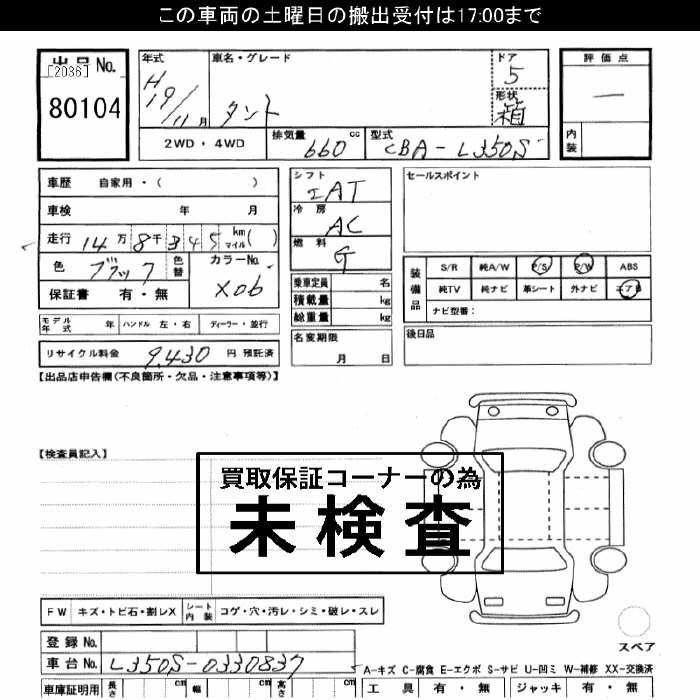 この車両の土曜日の搬出受付は17:00まで
出品No.
[2036]
80104
年式
H19/11月
車名・グレード
タント
ドア
5
形状
箱
評価点
一
内装
2WD・4WD
排気量
660 cc
型式
CBA-L350S
車歴 自家用・( )
車検 年 月
走行 14万8千345 km マイル( )
色 ブラック 色替
カラーNo.
X06
保証書 有・無
モデル年式 年 ハンドル 左・右 ディーラー・並行
リサイクル料金 9,430 円 預託済
シフト
IAT
冷房
AC
燃料
G
乗車定員 名
積載量 kg
総重量 kg
名変期限
月 日
セールスポイント
装備品
S/R 純A/W P/S P/W ABS
純TV 純ナビ 革シート 外ナビ エアB
ナビ型番:
後日品
【出品店申告欄(不良箇所・欠品・注意事項等)】
【検査員記入】
買取保証コーナーの為
未検査
FW キズ・トビ石・割レX シート内装 コゲ・穴・汚レ・シミ・破レ・スレ
スペア
登録No.
車台No. L350S-0330837
A-キズ C-腐食 E-エクボ S-サビ U-凹ミ W-補修 XX-交換済
車庫証明用 長さ cm 幅 cm 高さ cm
工具 有・無 ジャッキ 有・無